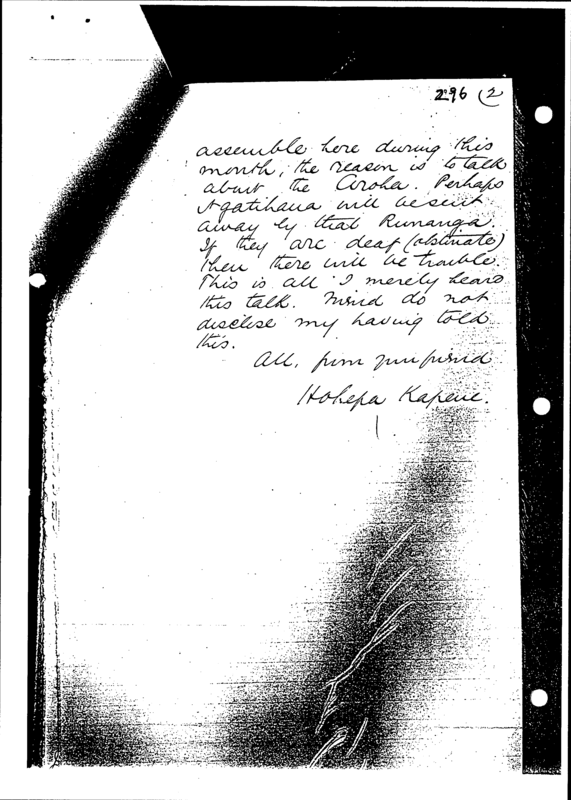 296 (2
assemble here during this
month; the reason is to talk
about the Aroha. Perhaps
Ngatihaua will be sent
away by that Runanga.
If they are deaf (obstinate)
then there will be trouble.
This is all I merely heard
this talk. Mind do not
disclose my having told
this.
All, from your friend
Hohepa